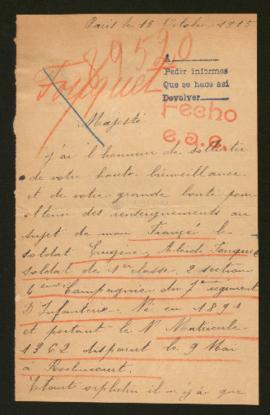 Paris le 18 Octobre 1915
89520
Fouquet
A
Pedir informes
Que se hace así
Devolver
Fecho
e.a.e.
Majesté
j'ai l'honneur de solliciter
de votre haute bienveillance
et de votre grande bonté pour
obtenir des renseignements au
sujet de mon Fiancé le
soldat Eugène, Fouquet
soldat de 1ère classe, 2 section
6eme Compagnie du 7e regiment
D'Infanterie. Né en 1891
et portant le N° Matricule
1362 disparut le 9 Mai
à Roclincourt.
Etant orphelin il n'a que